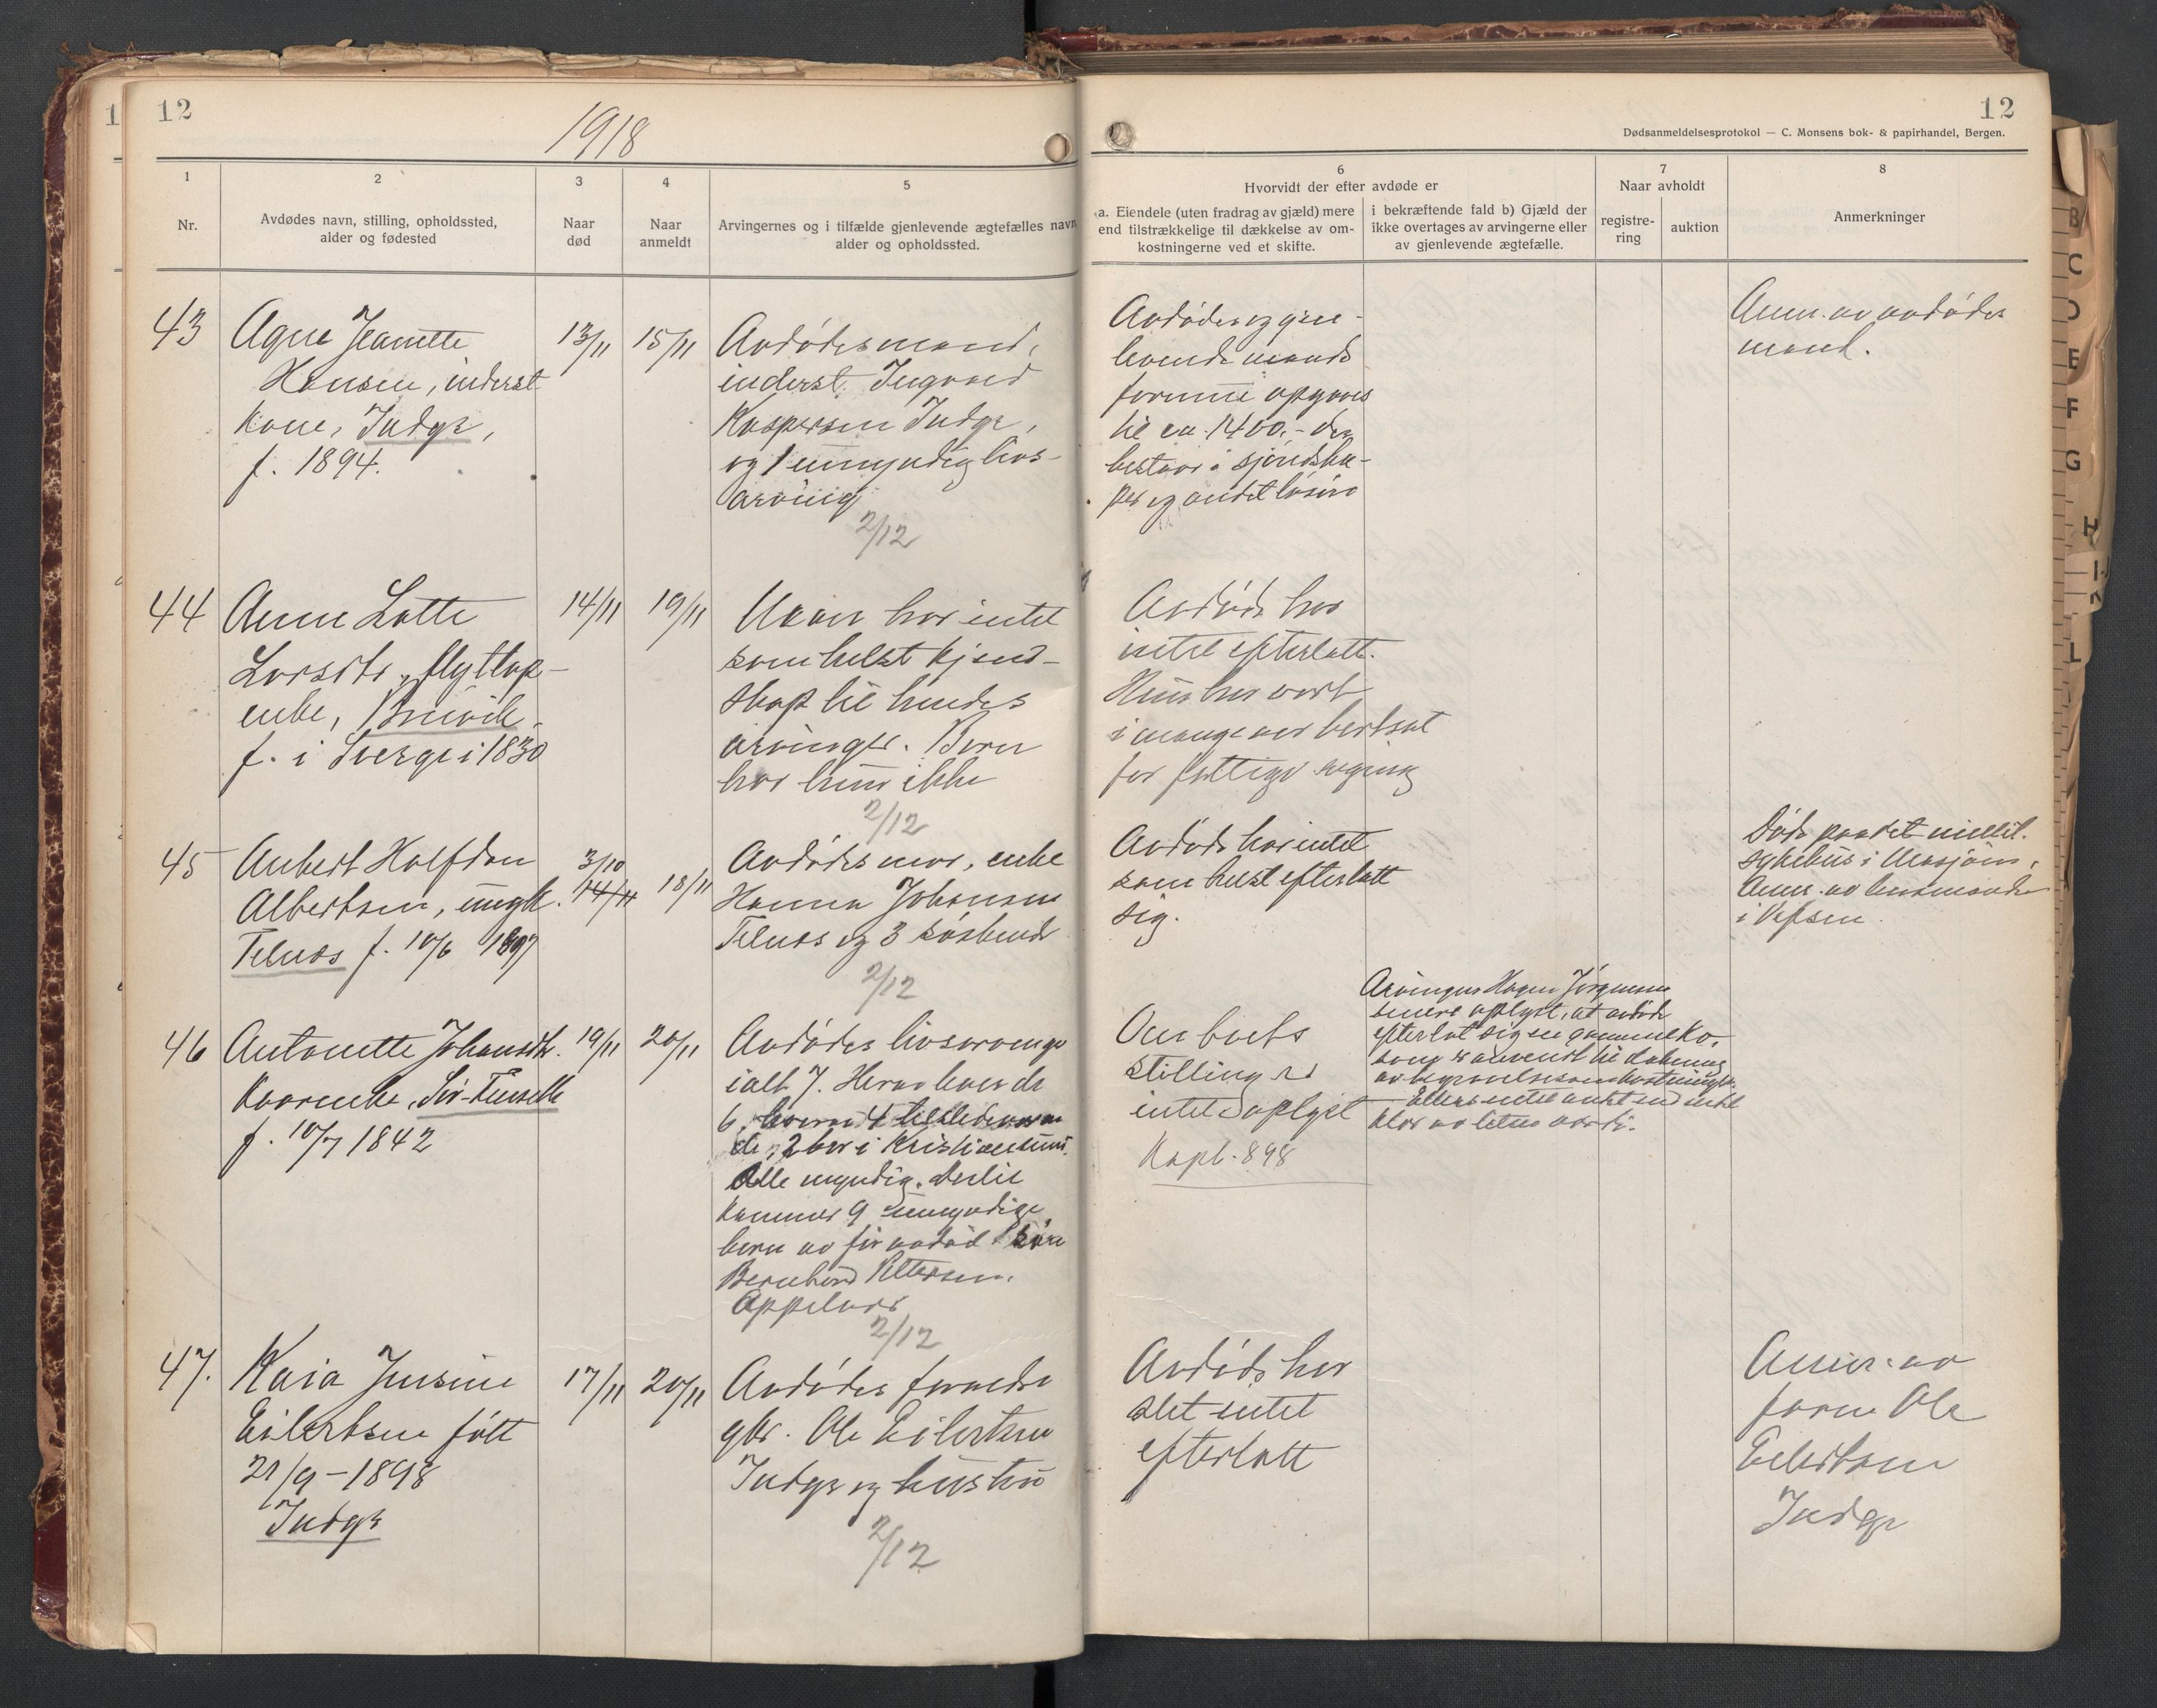 12
1918
1
2
3
4
5
Nr.
Avdødes navn, stilling, opholdssted,
alder og fødested
Naar
død
Naar
anmeldt
Arvingernes og i tilfælde gjenlevende ægtefælles navn
alder og opholdssted.
43
Agne Jeanette
Hansen, inderst
kone, Indyr,
f. 1894.
13/11
15/11
Avdødes mand,
inderst Ingvard
Kaspersen Indyr,
og 1 umyndig livs-
arving
2/12
44
Anne Lotte
flyttop-
enke,
f. i Sverge i 1830
14/11
19/11
Man har intet
somhelst kjend-
skap til hendes
arvinger. Born
har hun ikke
2/12
45
Anbert Halfdan
Albertsen, ungk.
Telnes f. 10/6 1897
3/10
14/11
18/11
Avdødes mor, enke
Hanna Johansen
Telnes og 3 søskende
2/12
46
Antonette Johansdtr.
f. 10/7 1842
19/11
20/11
Avdødes livsarvinger
ialt 7. Herav lever de
6, hvorav 4
2 bor i Kristiansund.
Alle myndig. Dertil
kommer 9 umyndige
born av før avdød søn
Bernhard Pettersen.
2/12
47.
Kaia Jensine
Eilertsen født
21/9-1898
Indyr
17/11
20/11
Avdødes forældre
gbr. Ole Eilertsen
Indyr og hustru
2/12
12
Dødsanmeldelsesprotokol — C. Monsens bok- & papirhandel, Bergen.
6
Hvorvidt der efter avdøde er
a. Eiendele (uten fradrag av gjæld) mere
end tilstrækkelige til dækkelse av om-
kostningerne ved et skifte.
i bekræftende fald b) Gjæld der
ikke overtages av arvingerne eller
av gjenlevende ægtefælle.
7
Naar avholdt
registre-
ring
auktion
8
Anmerkninger
Avdødes og gjen-
levende mands
formue opgives
til ca. 1400,- der
bestaar i
og andet løsøre
Anm. av avdødes
mand.
Avdøde har
intet efterlatt.
Hun har vært
i mange aar bortsat
for
Avdøde har intet
som helst efterlatt
sig.
Døde paa det millit.
sykehus i Mosjøen.
Anm. av lensmanden
i Vefsen.
Om boets
stilling er
intet oplyst
Kapt. 898
Arvingen Hagen Jörgensen
senere oplyst, at avdøde
efterlot sig en gammel ko,
som er anvendt til dækning
av begravelsesomkostninger.
Ellers intet andet end endel
klær av liten værdi.
Avdøde har
slet intet
efterlatt
Anm. av
faren Ole
Eilertsen
Indyr
B
C
D
E
F
G
H
I
K
L